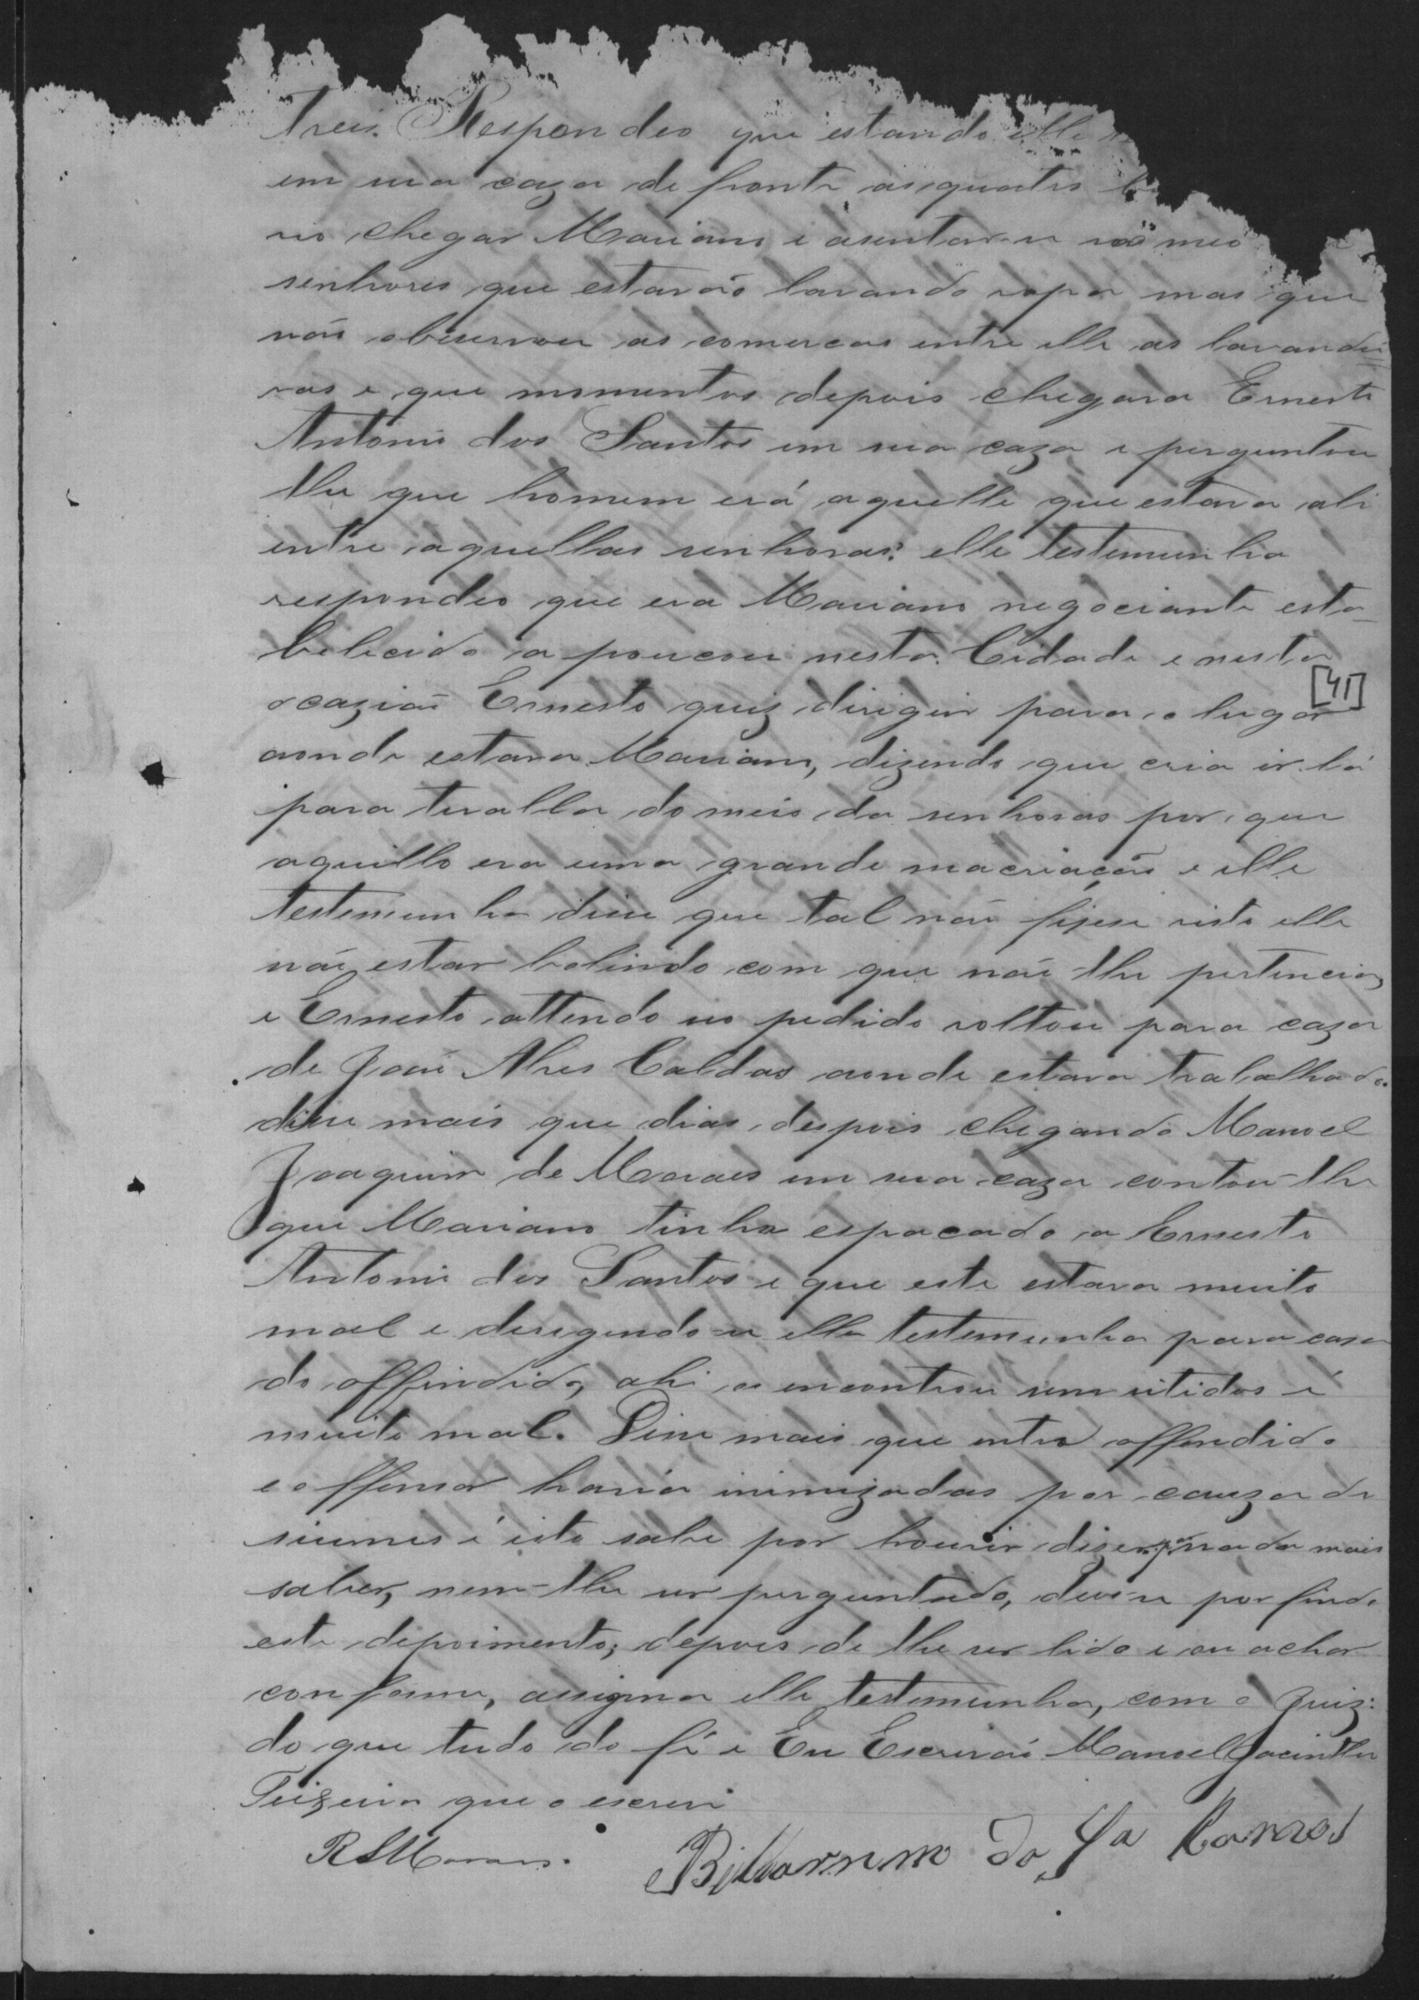 treis. Respondeo que estando elle
em sua caza de fronte as quatro
vio chegar Mariano e asentar-se no meio
senhoras que estavão lavando ropa mas que
não observou as comercas entre elle as lavandei=
ras e que momentos depois chegara Ernesto
Antonio dos Santos em sua caza e perguntou
lhe que homem erá aquelle que estava ali
entre aquellas senhoras; elle testemunha
respondeo que era Mariano negociante esta-
bilicido a poucou nesta Cidade e nesta
[41]
ocazião Ernesto quiz dirigir para o lugar
aonde estava Mariano, dizendo que cria ir lá
para tiralla do meio da senhoras por que
aquillo era uma grande macriação e elle
testemunha dice que tal não fizese visto elle
não estar bolindo com que não lhe pertencia,
e Ernesto attendo no pedido voltou para caza
de José Alves Caldas aonde estava trabalhado.
dice mais que dias despois chegando Manoel
Joaquim de Moraes em sua caza contou-lhe
que Mariano tinha espacado a Ernesto
Antonio dos Santos e que este estava muito
mal e derigindo-se elle testemunha para casa
do offindido, ahi o encontrou em
muito mal. Dice mais que entre offendido
e offensor havia inimizadas por cauza de
siumes é isto sabe por houvir dizer, nada mais
saber, nem-lhe ser perguntado, deu-se por findo
este depoimento; depois de lhe ser lido e ou achar
conforme, assigna elle testemunha, com o Juiz:
do que tudo do fé e Eu Escrivão Manoel Jacintho
Teixeira que o escrevi
R S Moraes.
do Sa Barros